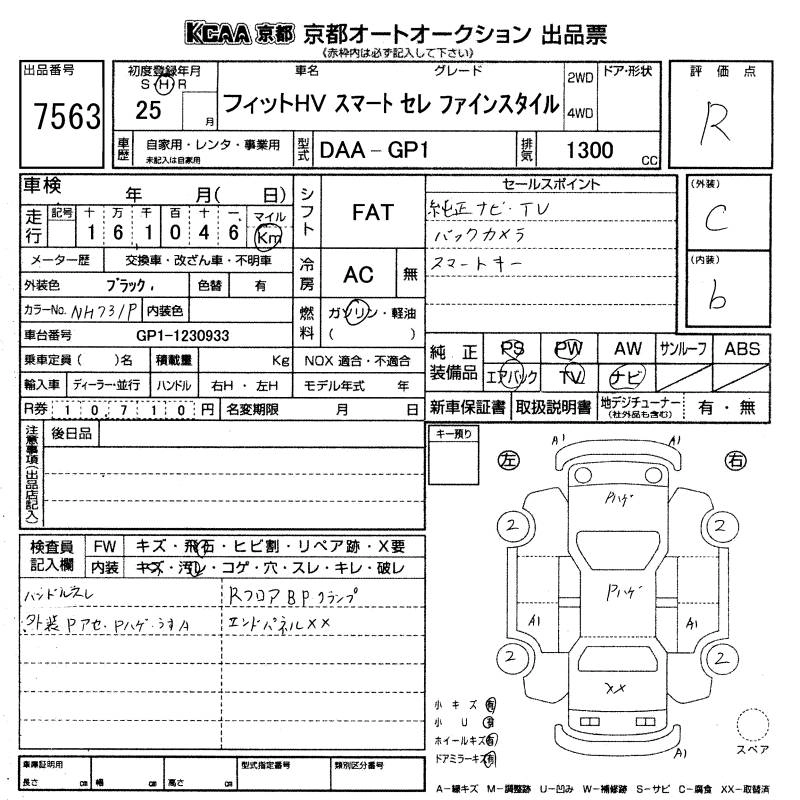 KCAA 京都 京都オートオークション 出品票
《赤枠内は必ず記入して下さい》
出品番号
7563
初度登録年月
S H R
25 月
車名 グレード
フィットHV スマート セレ ファインスタイル
2WD
4WD
ドア・形状
車歴
自家用・レンタ・事業用
未記入は自家用
型式
DAA-GP1
排気
1300 cc
評価点
R
(外装)
C
(内装)
b
車検 年 月( 日)
走行
記号 十 万 千 百 十 一
1 6 1 0 4 6
マイル
Km
メーター歴 交換車・改ざん車・不明車
外装色 ブラック. 色替 有
カラーNo. NH731P 内装色
車台番号 GP1-1230933
乗車定員( )名 積載量 Kg
輸入車 ディーラー・並行 ハンドル 右H・左H
R券 1 0,7 1 0 円 名変期限 月 日
シフト
FAT
冷房
AC 無
燃料
ガソリン・軽油
( )
NOX 適合・不適合
モデル年式 年
セールスポイント
純正ナビ・TV
バックカメラ
スマートキー
純正装備品
PS PW AW サンルーフ ABS
エアバック TV ナビ
新車保証書 取扱説明書 地デジチューナー
(社外品も含む)
有・無
注意事項(出品店記入)
後日品
キー預り
検査員記入欄
FW キズ・飛石・ヒビ割・リペア跡・X要
内装 キズ・汚れ・コゲ・穴・スレ・キレ・破レ
ハンドルスレ
外装Pアセ・Pハゲ・うすA
RフロアBPクランプ
エンドパネルXX
左 右
A1 A1
Pハゲ
2 2
Pハゲ
A1 A1
2 2
XX
A1
小キズ 有
小U 有
ホイールキズ 有
ドアミラーキズ 有
スペア
車庫証明用
長さ cm 幅 cm 高さ cm
型式指定番号
類別区分番号
A-線キズ M-調整跡 U-凹み W-補修跡 S-サビ C-腐食 XX-取替済